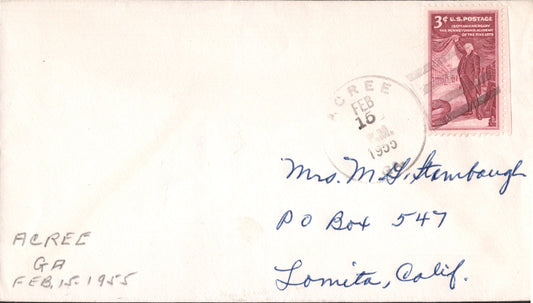 3¢ U.S. POSTAGE
150TH ANNIVERSARY
THE PENNSYLVANIA ACADEMY
OF THE FINE ARTS
ACREE
FEB
15
1955
GA.
Mrs. M. G. Stambaugh
P O Box 547
Lomita, Calif.
ACREE
GA
FEB. 15. 1955